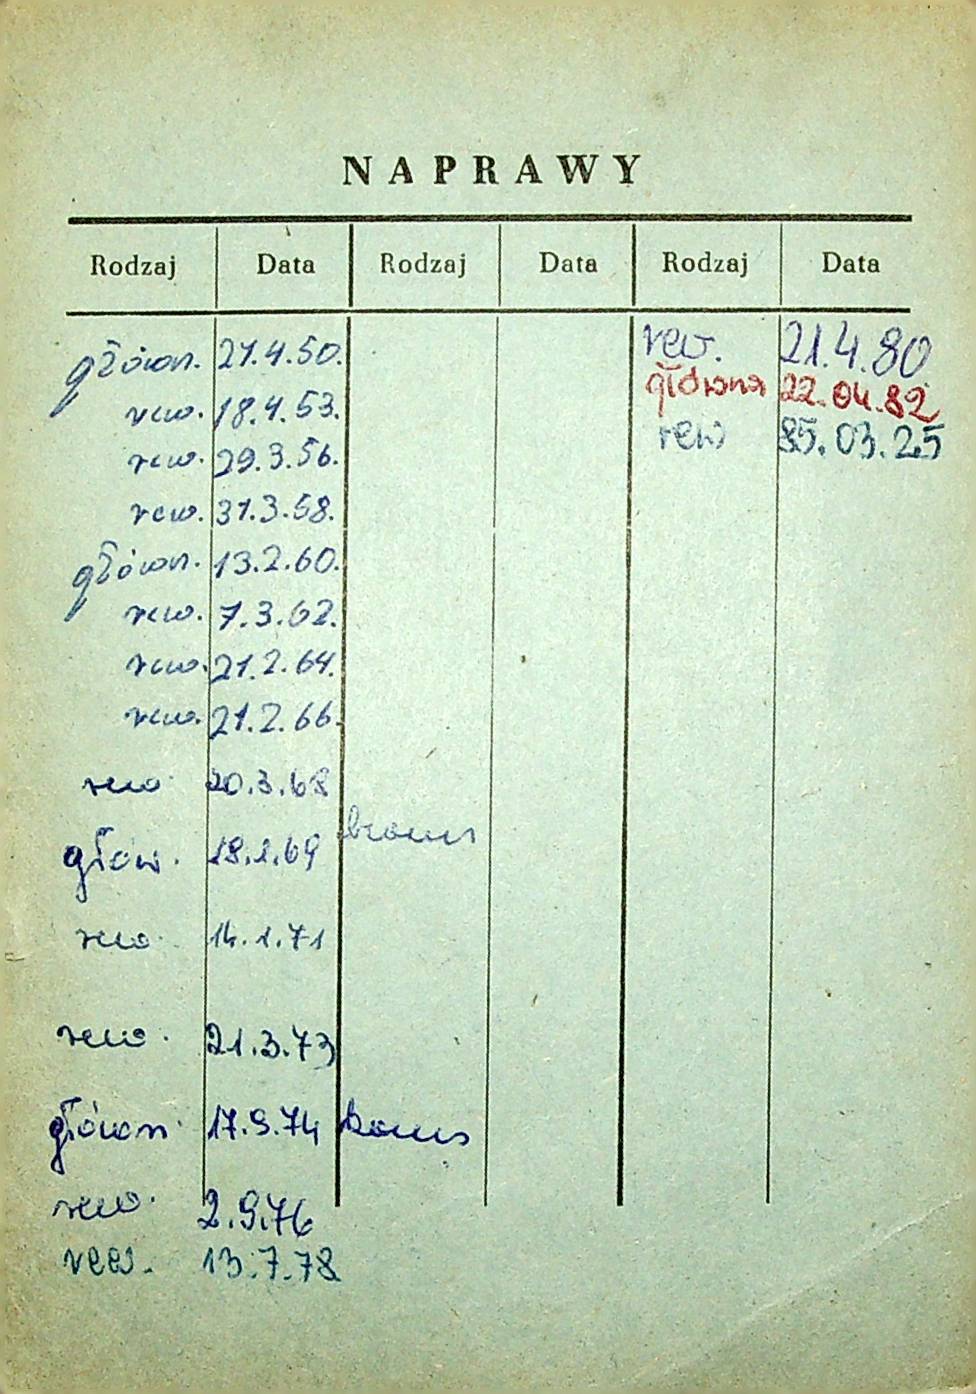 NAPRAWY
Rodzaj Data Rodzaj Data Rodzaj Data
główn. 21.4.50. rew. 21.4.80
rew. 18.4.53. główna 22.04.82
rew. 29.3.56. rew 85.03.25
rew. 31.3.58.
główn. 13.2.60.
rew. 7.3.62.
rew. 21.2.64.
rew. 21.2.66.
rew. 20.3.68
głów. 18.1.69
rew. 14.1.71
rew. 21.3.73
główn. 17.9.74
rew. 2.9.76
rew. 13.7.78